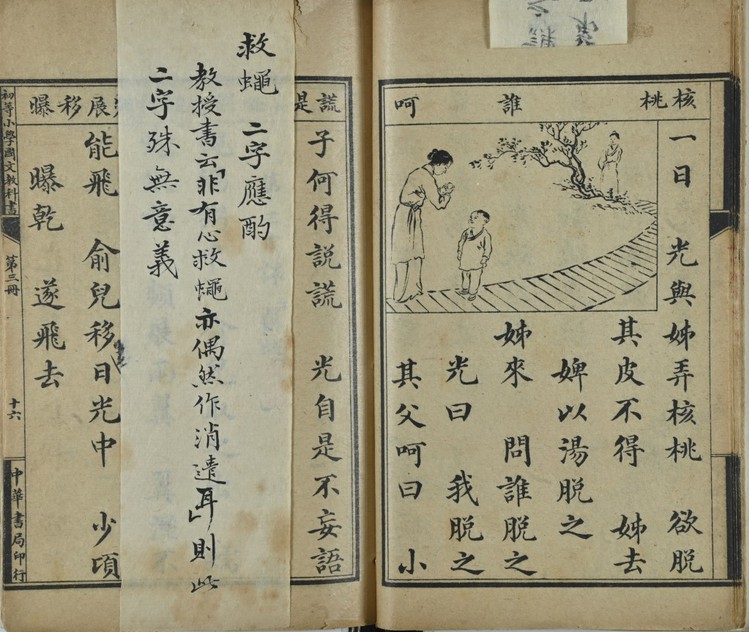 核桃 誰 呵
一日 光與姊弄核桃 欲脫
其皮不得 姊去
婢以湯脫之
姊來 問誰脫之
光曰 我脫之
其父呵曰 小
謊是
子何得說謊 光自是不妄語
救蠅 二字應酌
教授書云「非有心救蠅亦偶然作消遣耳」則此
二字殊無意義
展移曝
能飛 俞兒移日光中 少頃
曝乾 遂飛去
初等小學國文教科書 第三冊 十六 中華書局印行